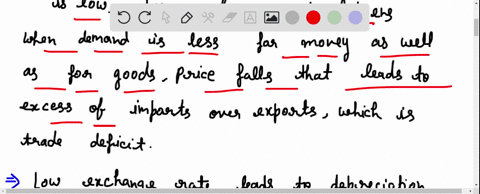 is low
when demand is less for money as well
as for goods, price falls that leads to
excess of imparts over exports, which is
trade deficit.
⇒ Low exchange rate leads to depreciation